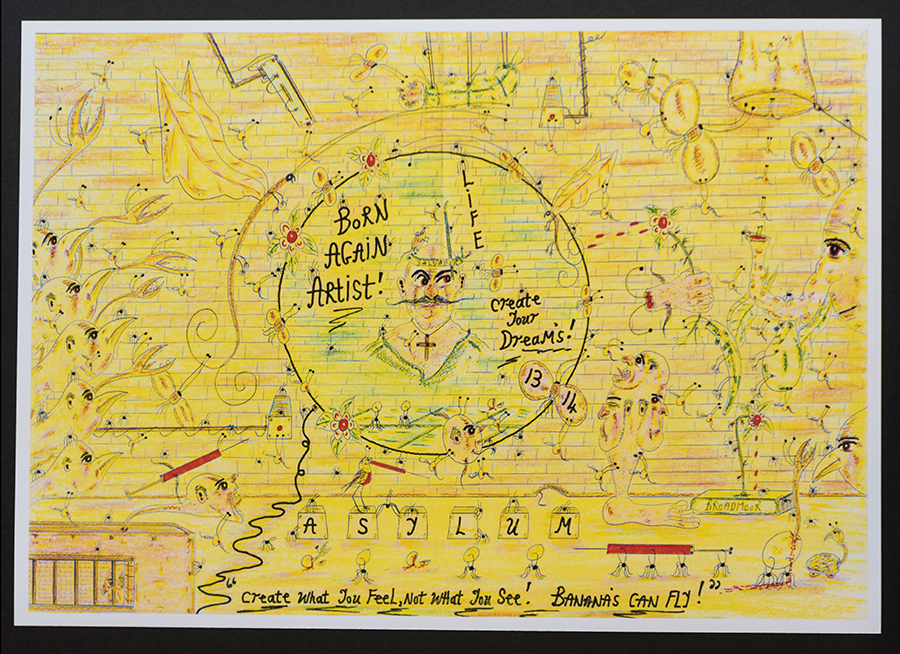 BORN
AGAIN
ARTIST!
LIFE
SALVADOR
Create
Your
DREAM'S!
13
14
BROADMOOR
A S Y L U M
"Create What You Feel, Not What You See! BANANA'S CAN FLY!"